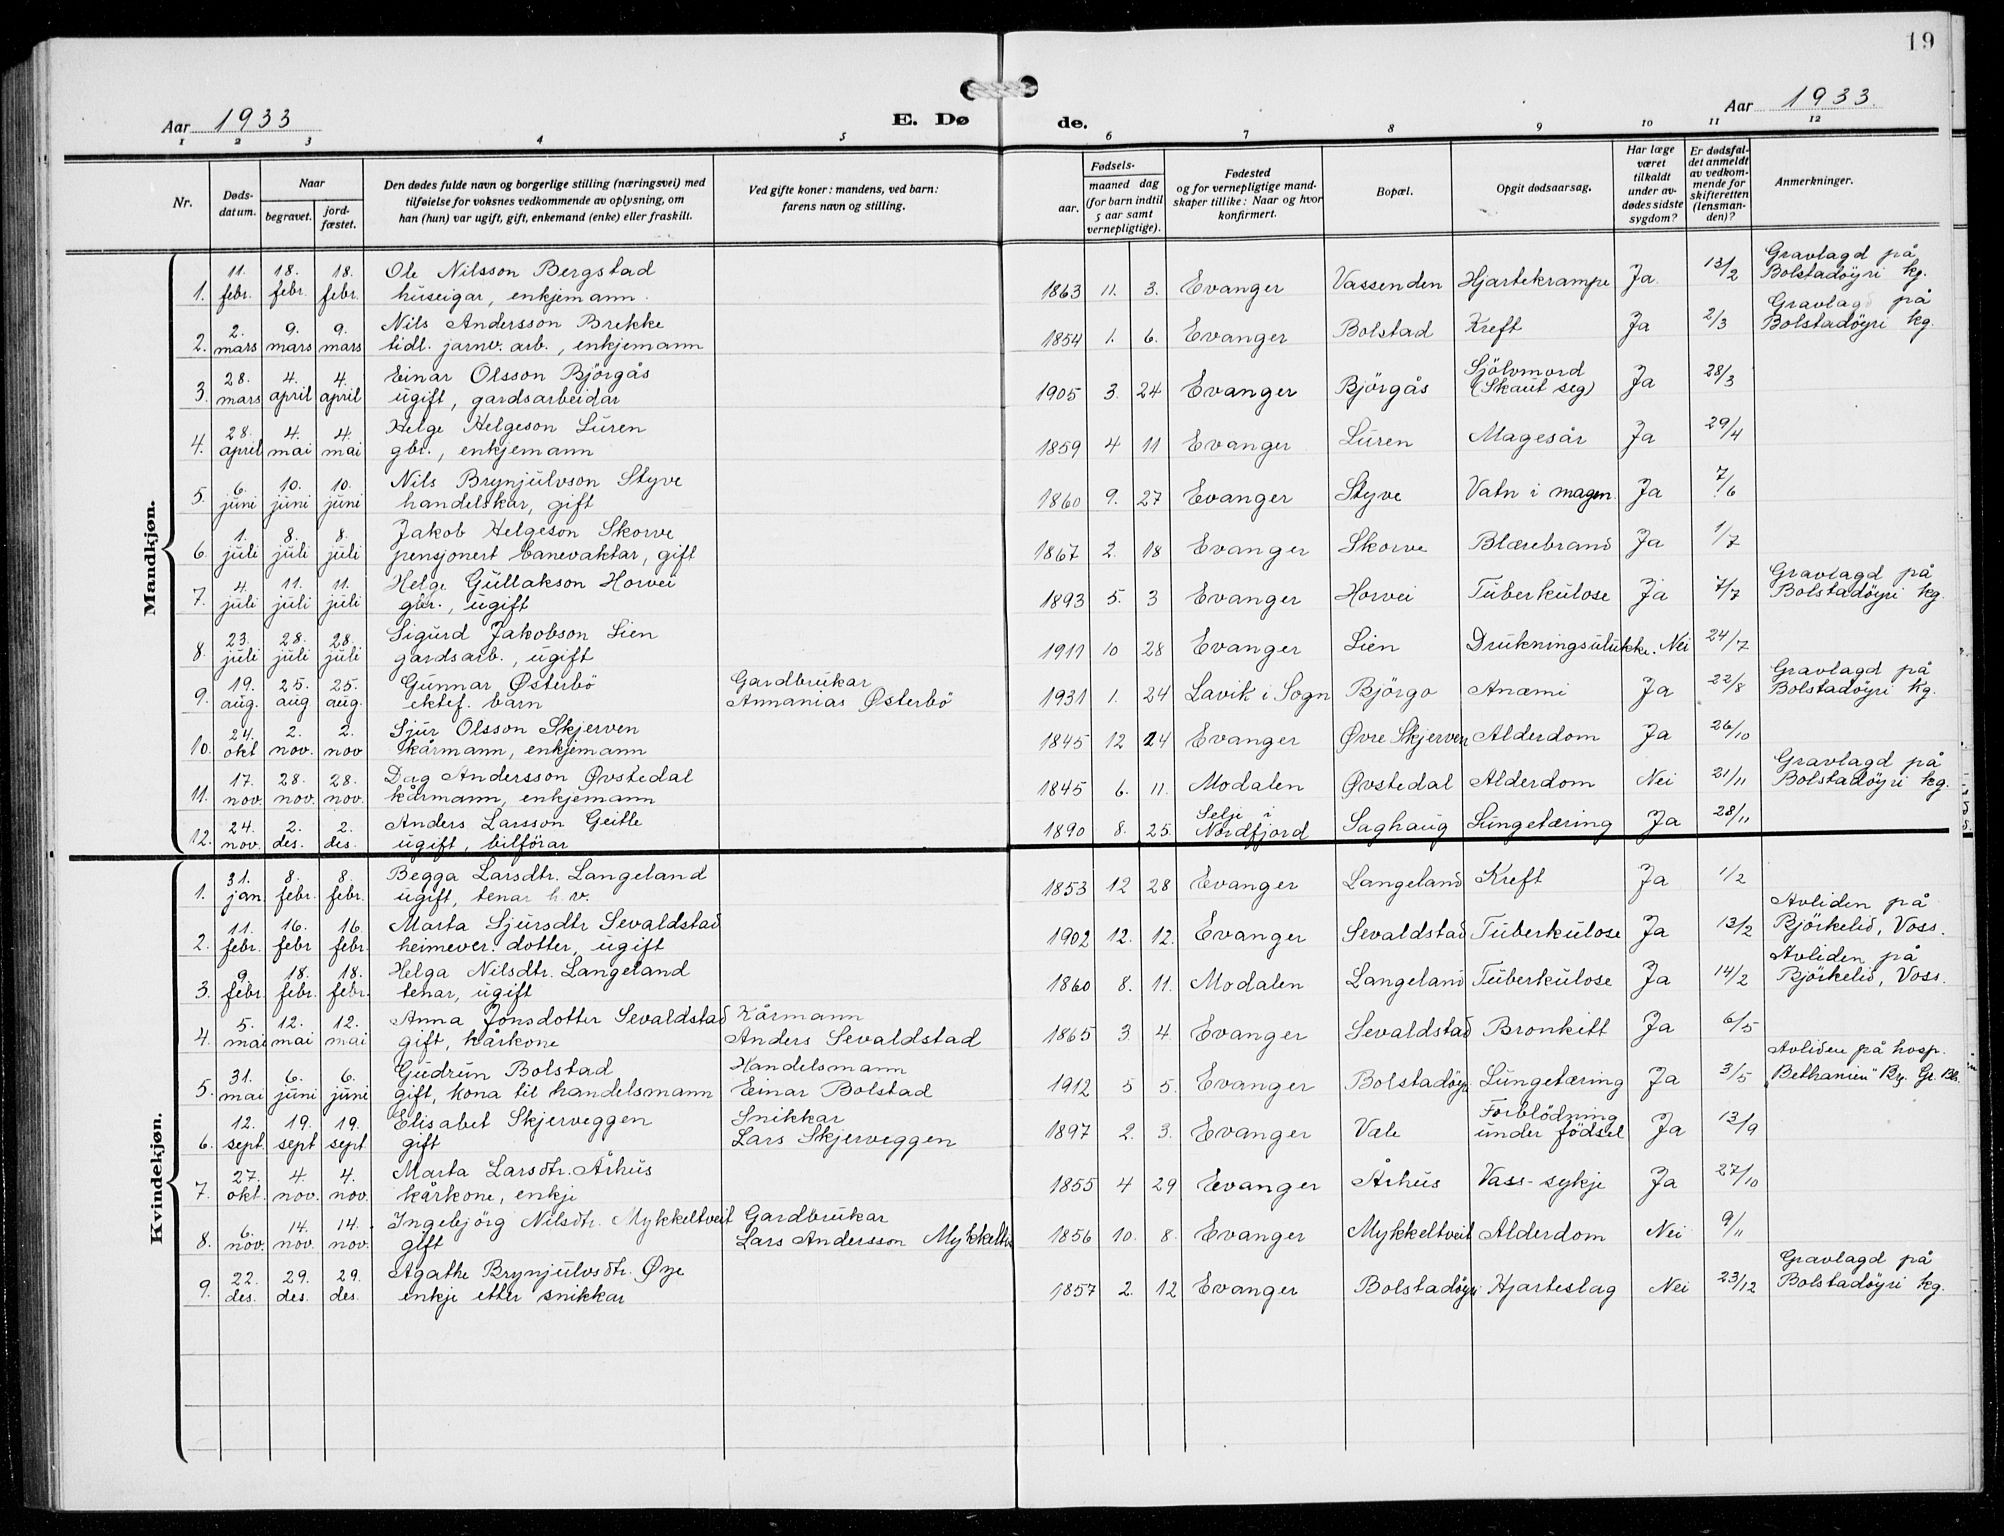 19
Aar 1933
E. Dø de.
Aar 1933.
1 2 3 4 5 6 7 8 9 10 11 12
Nr.
Døds-
datum.
Naar
begravet.
jord-
fæstet.
Den dødes fulde navn og borgerlige stilling (næringsvei) med
tilføielse for voksnes vedkommende av oplysning, om
han (hun) var ugift, gift, enkemand (enke) eller fraskilt.
Ved gifte koner: mandens, ved barn:
farens navn og stilling.
Fødsels-
aar.
maaned dag
(for barn indtil
5 aar samt
vernepligtige).
Fødested
og for vernepligtige mand-
skaper tillike: Naar og hvor
konfirmert.
Bopæl.
Opgit dødsaarsag.
Har læge
været
tilkaldt
under av-
dødes sidste
sygdom?
Er dødsfal-
det anmeldt
av vedkom-
mende for
skifteretten
(lensman-
den)?
Anmerkninger.
Mandkjøn.
11. 18. 18. Ole Nilsson Bergstad Gravlagd på
1. febr. febr. febr. huseigar, enkjemann. 1863 11. 3. Evanger Vassenden Hjartekrampe Ja. 13/2 Bolstadøyri kg.
2. 9. 9. Nils Andersson Brekke Gravlagd på
2. mars mars mars tidl. jarnv. arb., enkjemann 1854 1. 6. Evanger Bolstad Kreft Ja 2/3 Bolstadøyri kg.
28. 4. 4. Einar Olsson Björgås Sjölvmord
3. mars april april ugift, gardsarbeidar 1905 3. 24 Evanger Björgås (Skaut seg) Ja 28/3
28. 4. 4. Helge Helgeson Luren
4. april mai mai gbr., enkjemann 1859 4 11 Evanger Luren Magesår Ja 29/4
6. 10. 10. Nils Brynjulvson Styve
5. juni juni juni handelskar, gift 1860 9. 27 Evanger Styve Vatn i magen. Ja 7/6
1. 8. 8. Jakob Helgeson Skorve
6. juli juli juli pensjonert banevaktar, gift 1867 2. 18 Evanger Skorve Blærebrand Ja 1/7
4. 11. 11. Helge Gullakson Horvei Gravlagd på
7. juli juli juli gbr., ugift 1893 5. 3 Evanger Horvei Tuberkulose Ja 7/7 Bolstadøyri kg.
23. 28. 28. Sigurd Jakobson Lien
8. juli juli juli gardsarb., ugift 1911 10 28 Evanger Lien Drukningsulukke. Nei 24/7
19. 25. 25. Gunnar Østerbö Gardbrukar Gravlagd på
9. aug. aug aug. ektef. barn Annanias Østerbö 1931 1. 24 Lavik i Sogn Björgo Anæmi Ja 22/8 Bolstadøyri kg.
24. 2. 2. Sjur Olsson Skjerven
10. okt nov. nov kårmann, enkjemann 1845 12 24 Evanger Øvre Skjerven Alderdom Ja 26/10
17. 28. 28. Dag Andersson Øvstedal Gravlagd på
11. nov. nov. nov. kårmann, enkjemann 1845 6. 11. Modalen Øvstedal Alderdom Nei 21/11 Bolstadøyri kg.
24. 2. 2. Anders Larsson Geitle Selje i
12. nov. des. des. ugift, bilförar 1890 8. 25. Nordfjord Saghaug Lungetæring Ja 28/11
Kvindekjøn.
31. 8. 8. Begga Larsdtr. Langeland
1. jan. febr. febr. ugift, tenar h. v. 1853 12 28 Evanger Langeland Kreft Ja 1/2
11. 16. 16. Marta Sjursdtr Sevaldstad Avliden på
2. febr. febr febr. heimever. dotter, ugift 1902 12. 12. Evanger Sevaldstad Tuberkulose Ja 13/2 Bjørkelid, Voss.
9. 18. 18. Helga Nilsdtr. Langeland Avliden på
3. febr. febr. febr. tenar, ugift 1860 8. 11. Modalen Langeland Tuberkulose Ja 14/2 Bjørkelid, Voss.
5. 12. 12. Anna Jonsdotter Sevaldstad Kårmann
4. mai mai mai gift, kårkone Anders Sevaldstad 1865 3. 4 Evanger Sevaldstad Bronkitt Ja 6/5
31. 6. 6. Gudrun Bolstad Handelsmann Avliden på hosp.
5. mai juni juni gift, kona til handelsmann Einar Bolstad 1912 5 5. Evanger Bolstadøyri Lungetæring Ja 3/5 „Bethanien"
12. 19. 19. Elisabet Skjerveggen Snikkar Forblödning
6. sept. sept sept gift Lars Skjerveggen 1897 2. 3. Evanger Vale under födsel Ja 13/9
27. 4. 4. Marta Larsdtr. Århus
7. okt. nov. nov. kårkone, enkje 1855 4 29 Evanger Århus Vass-sykje Ja 27/10
6. 14. 14. Ingebjörg Nilsdtr. Mykkeltveit Gardbrukar
8. nov. nov. nov. gift Lars Andersson Mykkeltv 1856 10. 8. Evanger Mykkeltveit Alderdom Nei 9/11
22. 29. 29. Agathe Brynjulvsdtr. Øye Gravlagd på
9. des. des. des. enkje etter snikkar 1857 2. 12 Evanger Bolstadøyri Hjarteslag Nei 23/12 Bolstadöyri kg.